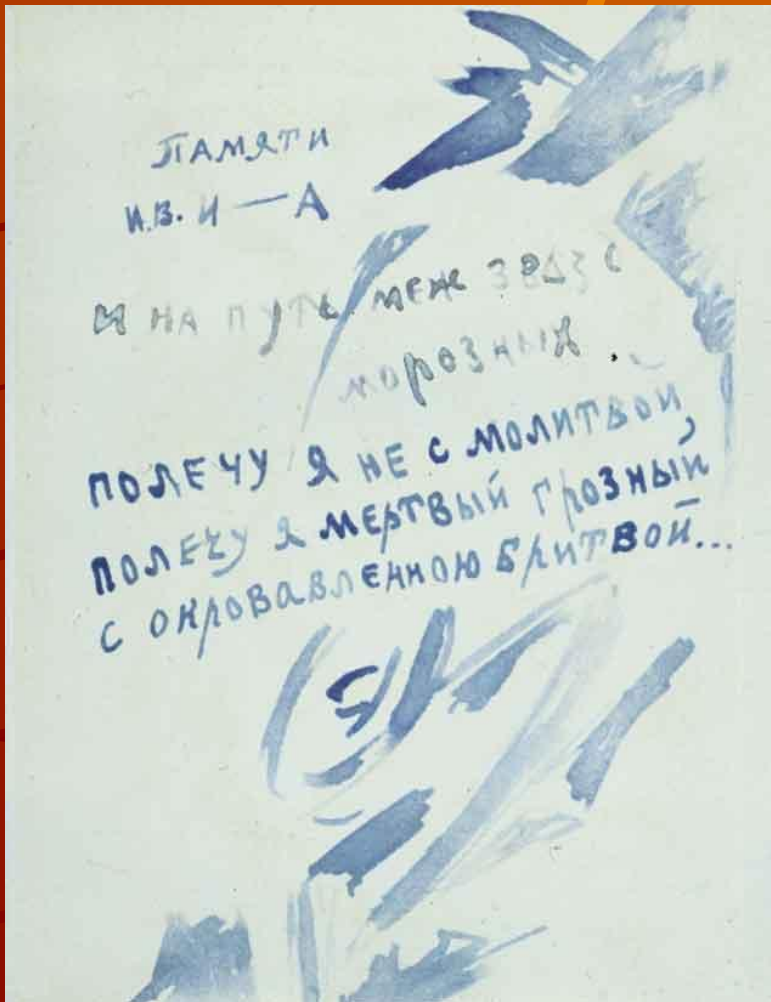 ПАМЯТИ
И.В. И — А
И НА ПУТЬ МЕЖ
МОРОЗНЫХ
ПОЛЕЧУ Я НЕ С МОЛИТВОЙ,
ПОЛЕЧУ Я МЕРТВЫЙ ГРОЗНЫЙ
С ОКРОВАВЛЕННОЮ БРИТВОЙ...